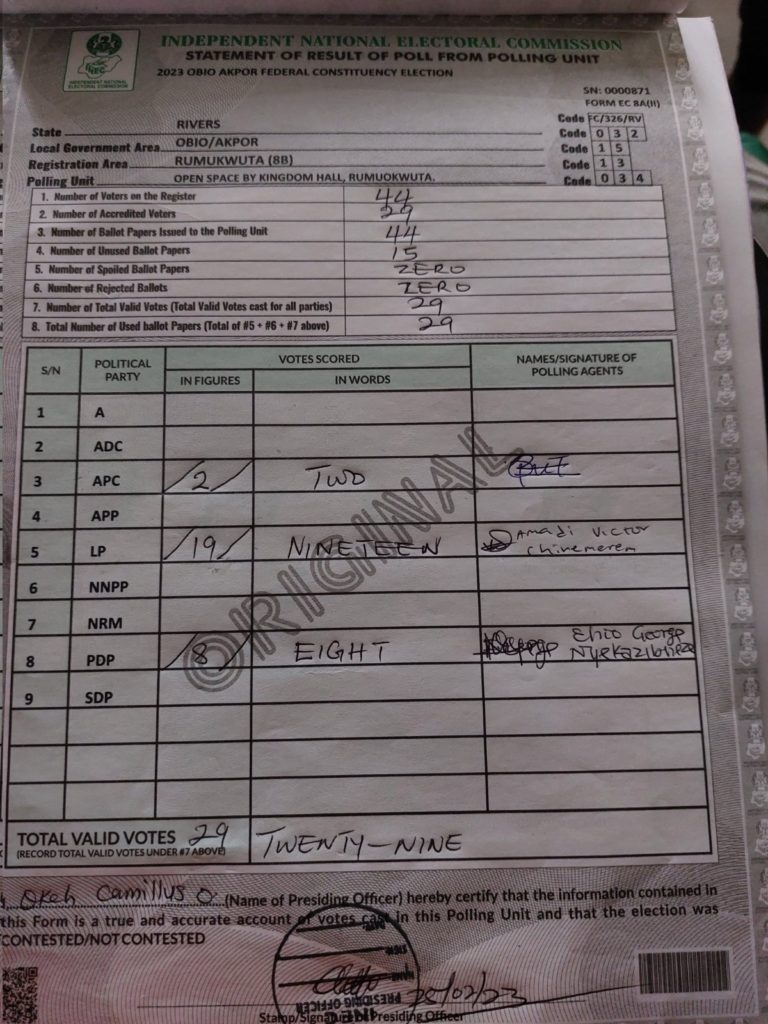 INDEPENDENT NATIONAL ELECTORAL COMMISSION
STATEMENT OF RESULT OF POLL FROM POLLING UNIT
2023 OBIO AKPOR FEDERAL CONSTITUENCY ELECTION
INEC
INDEPENDENT NATIONAL ELECTORAL COMMISSION
SN: 0000871
FORM EC 8A(II)
Code FC/326/RV
State RIVERS Code 0 3 2
Local Government Area OBIO/AKPOR Code 1 5
Registration Area RUMUKWUTA (8B) Code 1 3
Polling Unit OPEN SPACE BY KINGDOM HALL, RUMUOKWUTA. Code 0 3 4
1. Number of Voters on the Register 44
2. Number of Accredited Voters 29
3. Number of Ballot Papers Issued to the Polling Unit 44
4. Number of Unused Ballot Papers 15
5. Number of Spoiled Ballot Papers ZERO
6. Number of Rejected Ballots ZERO
7. Number of Total Valid Votes (Total Valid Votes cast for all parties) 29
8. Total Number of Used ballot Papers (Total of #5 + #6 + #7 above) 29
S/N POLITICAL PARTY VOTES SCORED NAMES/SIGNATURE OF POLLING AGENTS
IN FIGURES IN WORDS
1 A
2 ADC
3 APC /2/ TWO
4 APP
5 LP /19/ NINETEEN Amadi Victor Chinemerem
6 NNPP
7 NRM
8 PDP /8/ EIGHT George
9 SDP
ORIGINAL
TOTAL VALID VOTES 29 TWENTY-NINE
(RECORD TOTAL VALID VOTES UNDER #7 ABOVE)
Okeh Camillus O. (Name of Presiding Officer) hereby certify that the information contained in
this Form is a true and accurate account of votes cast in this Polling Unit and that the election was
CONTESTED/NOT CONTESTED
DATE
SIGN
NAME
PRESIDING OFFICER
INEC
28/02/23
Stamp/Signature of Presiding Officer